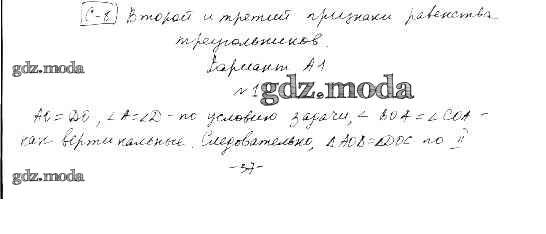 С-8 Второй и третий признаки равенства
треугольников.
gdz.moda
Вариант А1
№1
gdz.moda
АО=ДО, ∠А=∠Д - по условию задачи, ∠ВОА=∠СОД -
как вертикальные. Следовательно, △АОВ=△DОС по II
-37-
gdz.moda